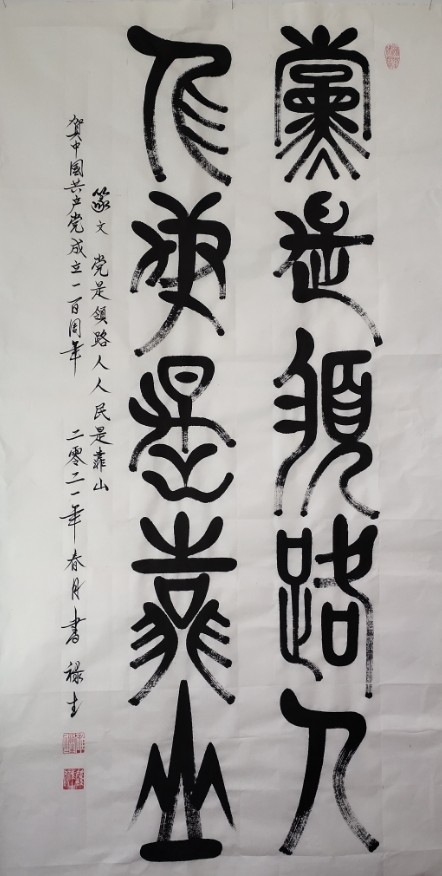 黨是領路人
人民是靠山
篆文 党是領路人人民是靠山
贺中国共产党成立一百周年 二零二一年春月書 祿生